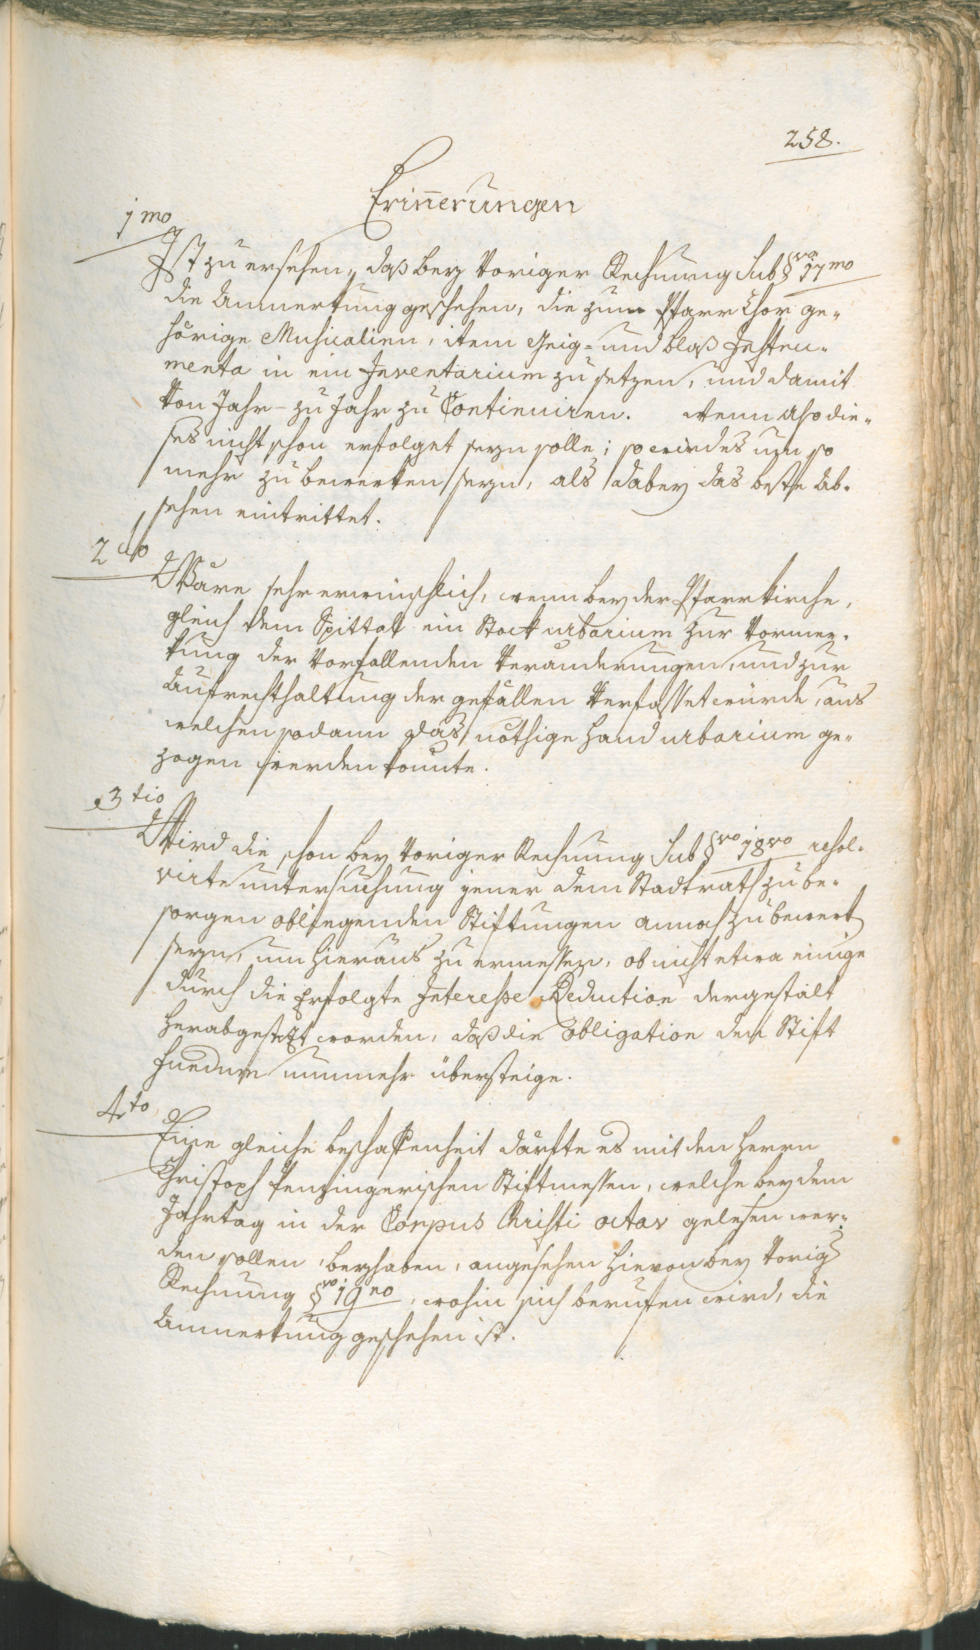 258.
Erinnerungen
1mo
Ist zu ersehen, daß bey voriger Rechnung sub §vo 17mo
die Anmerkung geschehen, die zum Pfarr Chor ge-
hörige Musicalien, item Geig- und blaß Instru-
menta in ein Inventarium zu setzen, und damit
von Jahr- zu Jahr zu Continuiren. wenn also die-
ses nicht schon erfolget seyn solle; so wird es um so
mehr zu bewerken seyn, als dabey das beste Ab-
sehen eintrittet.
2do
Wäre sehr erwünschlich, wenn bey der Pfarrkirche,
gleich dem Spittal ein Stock urbarium zur Vormer-
kung der vorfallenden Veränderungen, und zur
Aufrechthaltung der gefällen verfasset würde, aus
welchen sodann das nöthige Hand urbarium ge-
zogen werden könnte.
3tio
Wird die schon bey voriger Rechnung sub §vo 18vo resol-
virte untersuchung jener dem Stadtrath zu be-
sorgen obliegenden Stiftungen annoch zu bewerk
seyn, um hieraus zu ermessen, ob nicht etwa einige
durch die Erfolgte Interesse Reduction dergestalt
herabgesetzt worden, daß die obligation den Stift
fundum nunmehr übersteige.
4to
Eine gleiche beschaffenheit dürfte es mit den Herrn
Christoph Penzingerischen Stiftmessen, welche bey dem
Jahrtag in der Corpus Christi octav gelesen wer-
den sollen, beyhaben, angesehen hievon bey vorig
Rechnung §vo 19no, wohin sich berufen wird, die
Anmerkung geschehen ist.